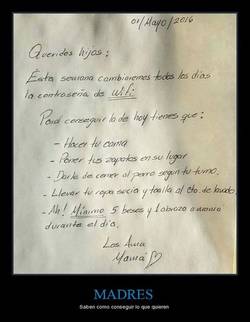 01/Mayo/2016
Queridos hijos:
Esta semana cambiaremos todos los días
la contraseña de wifi
Para conseguir la de hoy tienes que:
- Hacer tu cama
- Poner tus zapatos en su lugar
- Darle de comer al perro según tu turno.
- Llevar tu ropa sucia y toalla al Cto. de lavado
- Ah! Mínimo 5 besos y 1 abrazo a mamá
durante el día.
Los Ama
Mamá
MADRES
Saben como conseguir lo que quieren